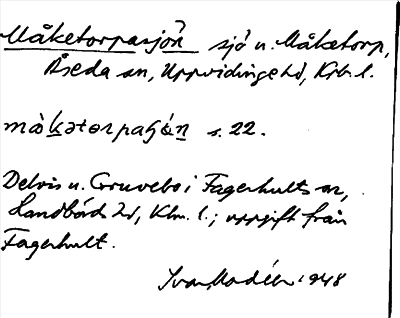 Måketorpasjön sjö u. Måketorp,
Åseda sn, Uppvidinge hd, Krb. l.
måkətorpaʃǿn s. 22.
Delvis u. Gruvebo i Fagerhults sn,
Handbörds hd, Klm. l.; uppgift från
Fagerhult.
Ivar Modéer 1948